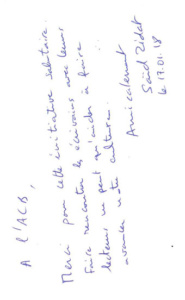 A l'ACB,
Merci pour cette initiative salutaire.
Faire rencontrer les écrivains avec leurs
lecteurs, ne peut qu'aider à faire
avancer notre culture.
Amicalement
Said Zidat
le 17.01.18